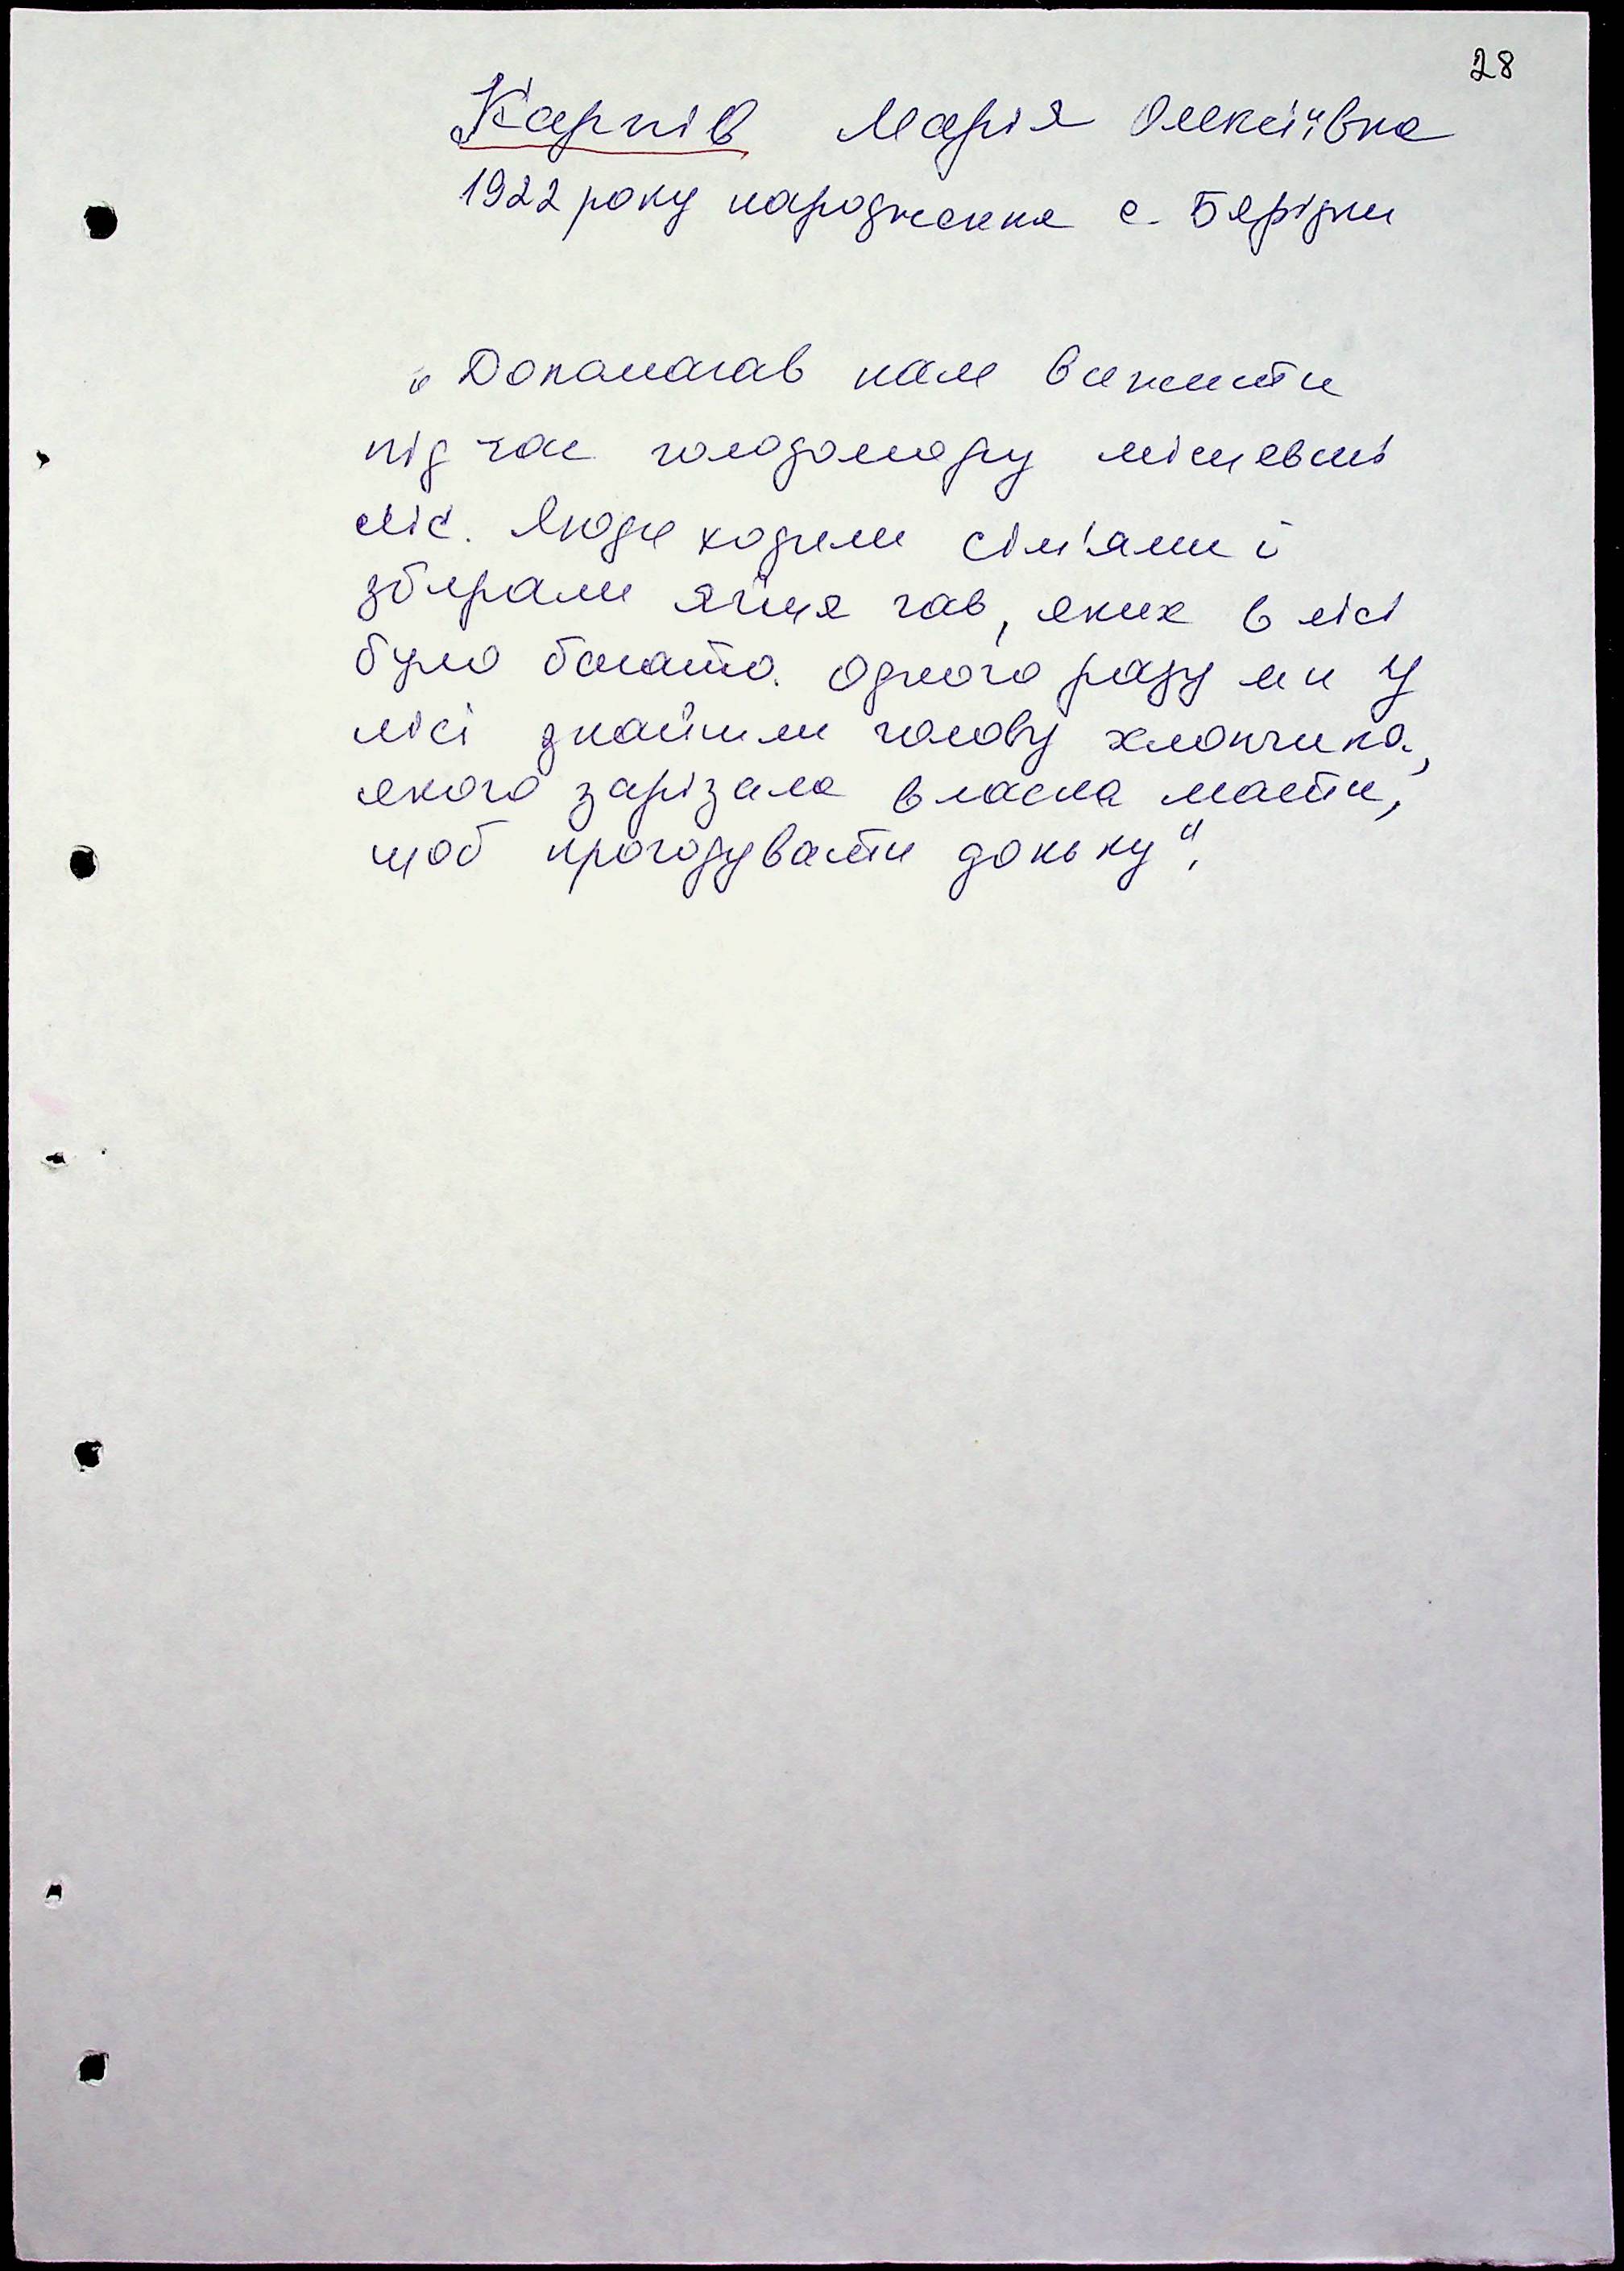 28
Карпів Марія Олексіївна
1922 року народження с. Бярідки
„Допомагав нам вижити
під час голодомору місцевий
ліс. Люди ходили сім'ями і
збирали яйця гав, яких в лісі
було багато. Одного разу ми у
лісі знайшли голову хлопчика,
якого зарізала власна мати,
щоб прогодувати доньку".